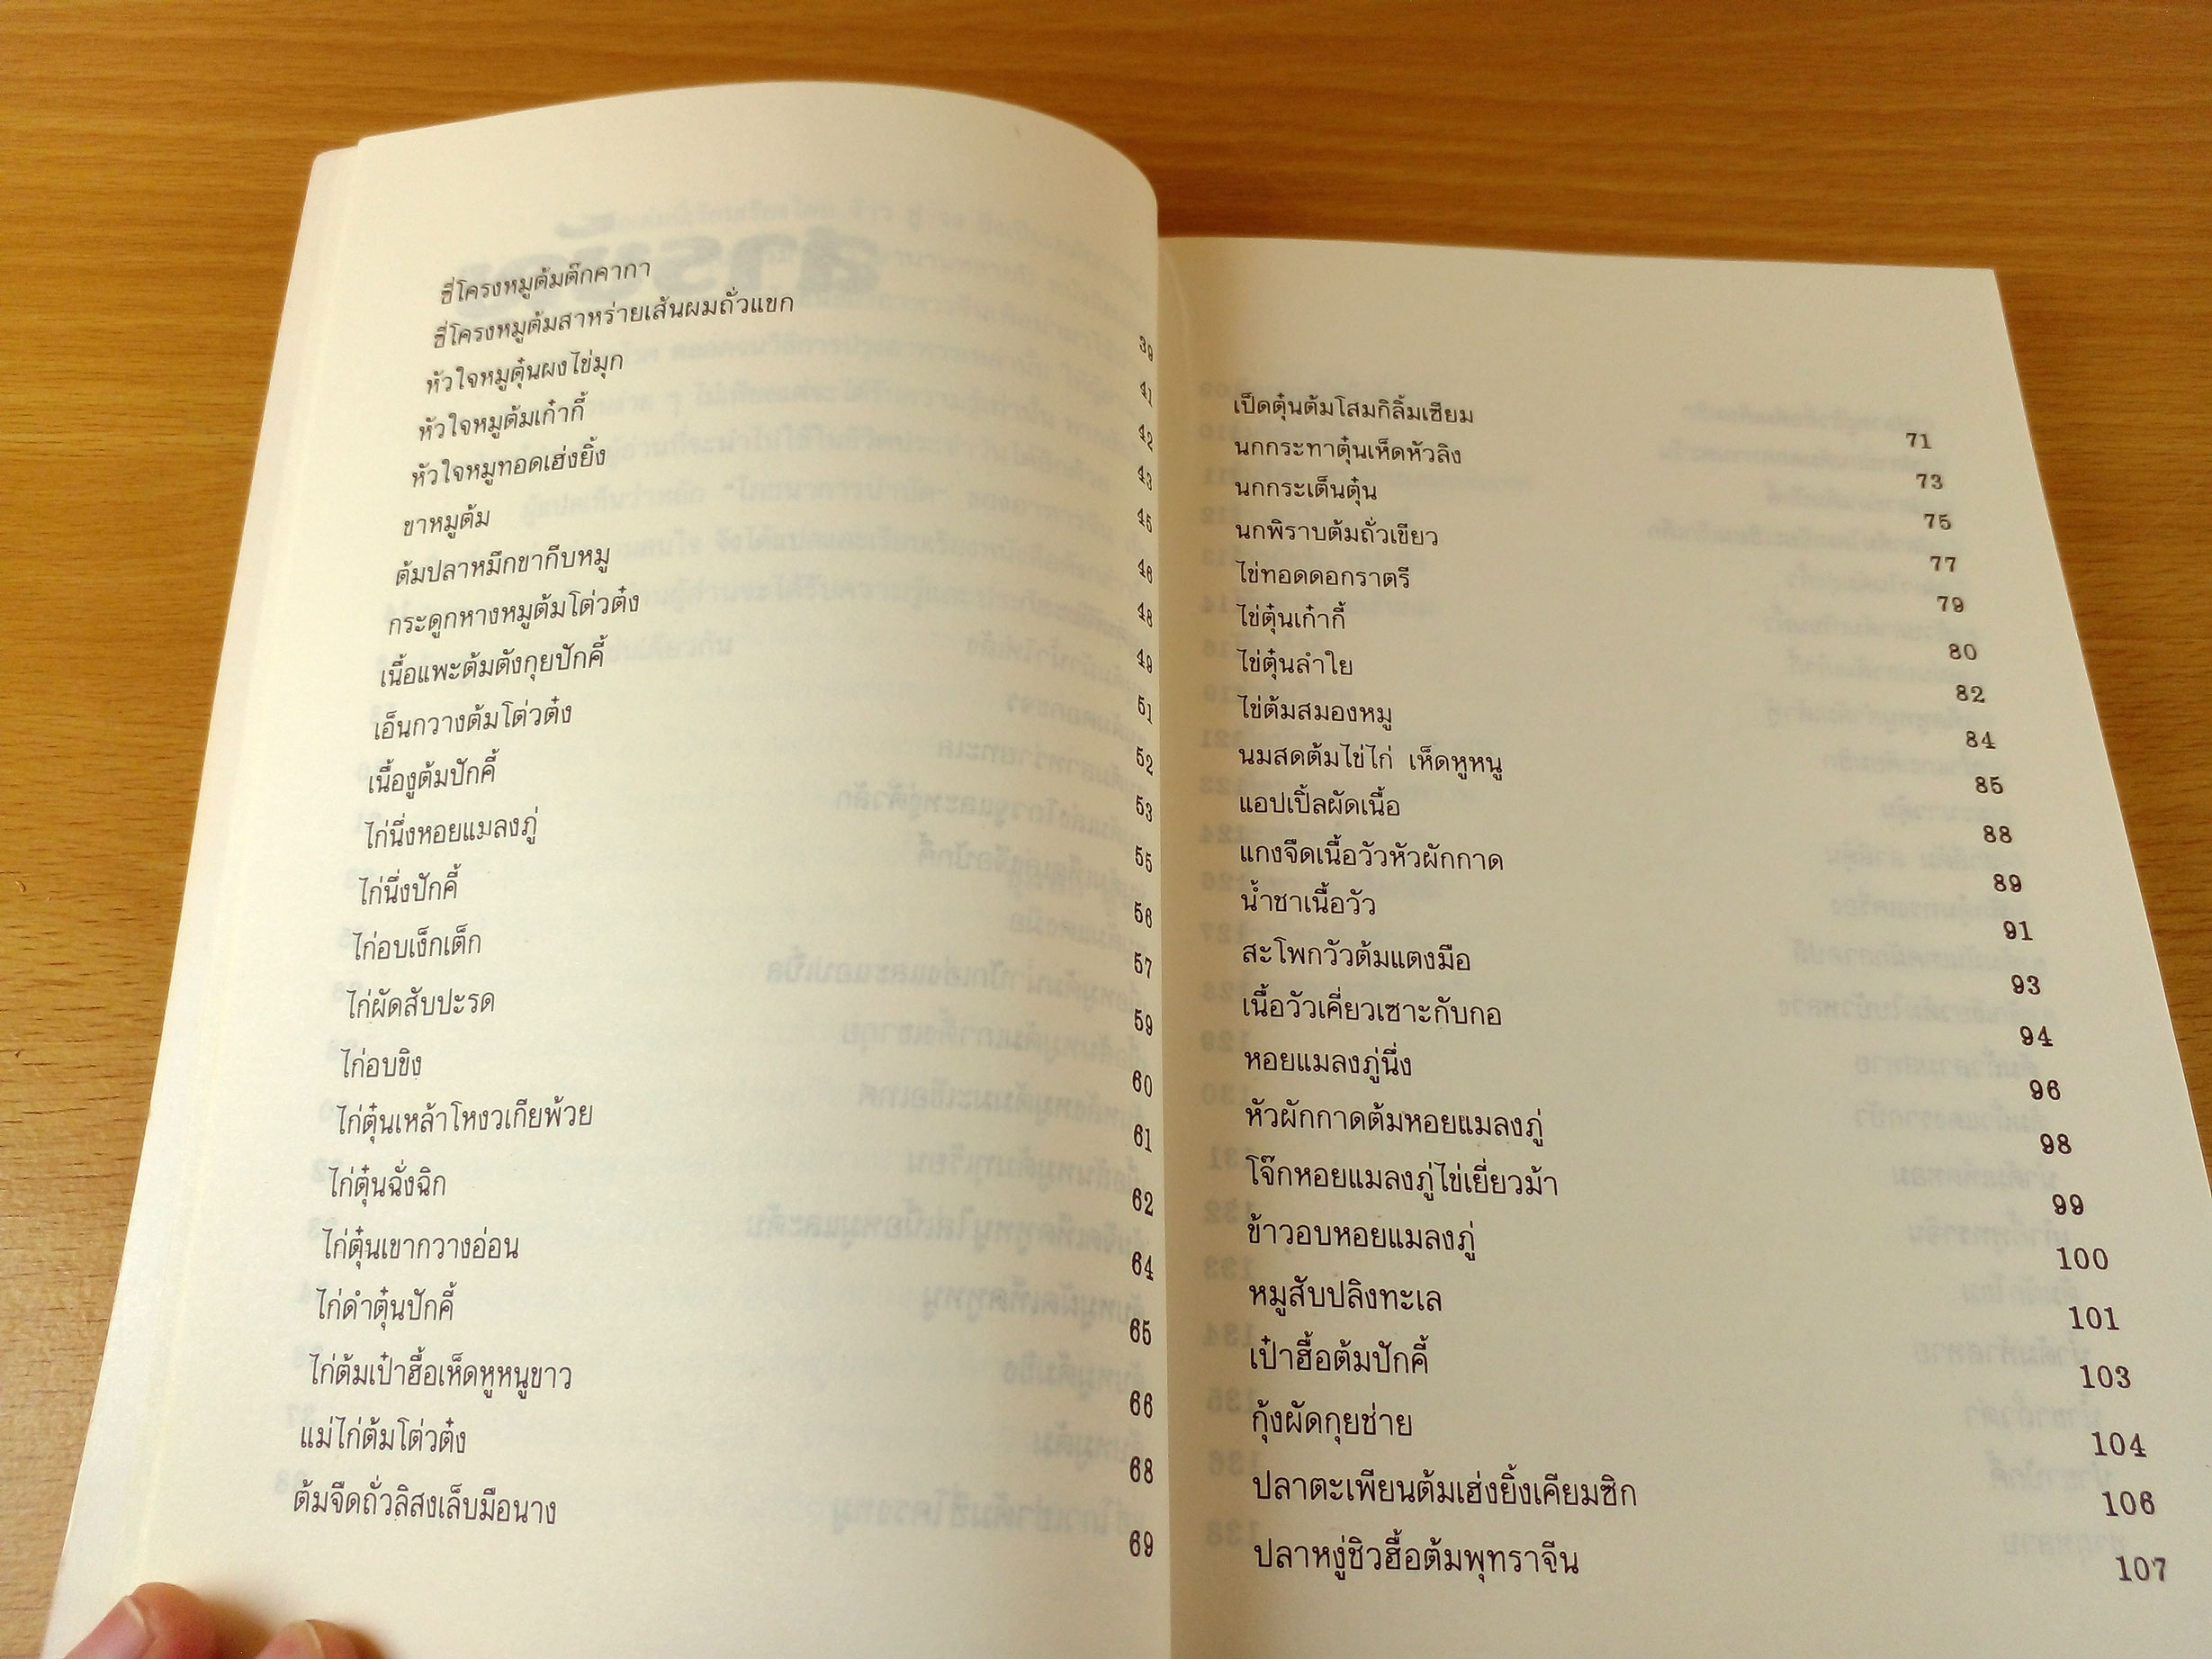 ซี่โครงหมูต้มตั๊กคากา 39
ซี่โครงหมูต้มสาหร่ายเส้นผมถั่วแขก 41
หัวใจหมูตุ๋นผงไข่มุก 42
หัวใจหมูต้มเก๋ากี้ 43
หัวใจหมูทอดเฮ่งยิ้ง 45
ขาหมูต้ม 46
ต้มปลาหมึกขากีบหมู 48
กระดูกหางหมูต้มโต่วต๋ง 49
เนื้อแพะต้มตังกุยปักคี้ 51
เอ็นกวางต้มโต่วต๋ง 52
เนื้องูต้มปักคี้ 53
ไก่นึ่งหอยแมลงภู่ 55
ไก่นึ่งปักคี้ 56
ไก่อบเง็กเต็ก 57
ไก่ผัดสับปะรด 59
ไก่อบขิง 60
ไก่ตุ๋นเหล้าโหงวเกียพ้วย 61
ไก่ตุ๋นฉั่งฉิก 62
ไก่ตุ๋นเขากวางอ่อน 64
ไก่ดำตุ๋นปักคี้ 65
ไก่ต้มเป๋าฮื้อเห็ดหูหนูขาว 66
แม่ไก่ต้มโต่วต๋ง 68
ต้มจืดถั่วลิสงเล็บมือนาง 69
เป็ดตุ๋นต้มโสมกิลิ้มเซียม 71
นกกระทาตุ๋นเห็ดหัวลิง 73
นกกระเต็นตุ๋น 75
นกพิราบต้มถั่วเขียว 77
ไข่ทอดดอกราตรี 79
ไข่ตุ๋นเก๋ากี้ 80
ไข่ตุ๋นลำใย 82
ไข่ต้มสมองหมู 84
นมสดต้มไข่ไก่ เห็ดหูหนู 85
แอปเปิ้ลผัดเนื้อ 88
แกงจืดเนื้อวัวหัวผักกาด 89
น้ำชาเนื้อวัว 91
สะโพกวัวต้มแตงมือ 93
เนื้อวัวเคี่ยวเซาะกับกอ 94
หอยแมลงภู่นึ่ง 96
หัวผักกาดต้มหอยแมลงภู่ 98
โจ๊กหอยแมลงภู่ไข่เยี่ยวม้า 99
ข้าวอบหอยแมลงภู่ 100
หมูสับปลิงทะเล 101
เป๋าฮื้อต้มปักคี้ 103
กุ้งผัดกุยช่าย 104
ปลาตะเพียนต้มเฮ่งยิ้งเคียมซิก 106
ปลาหงู่ชิวฮื้อต้มพุทราจีน 107